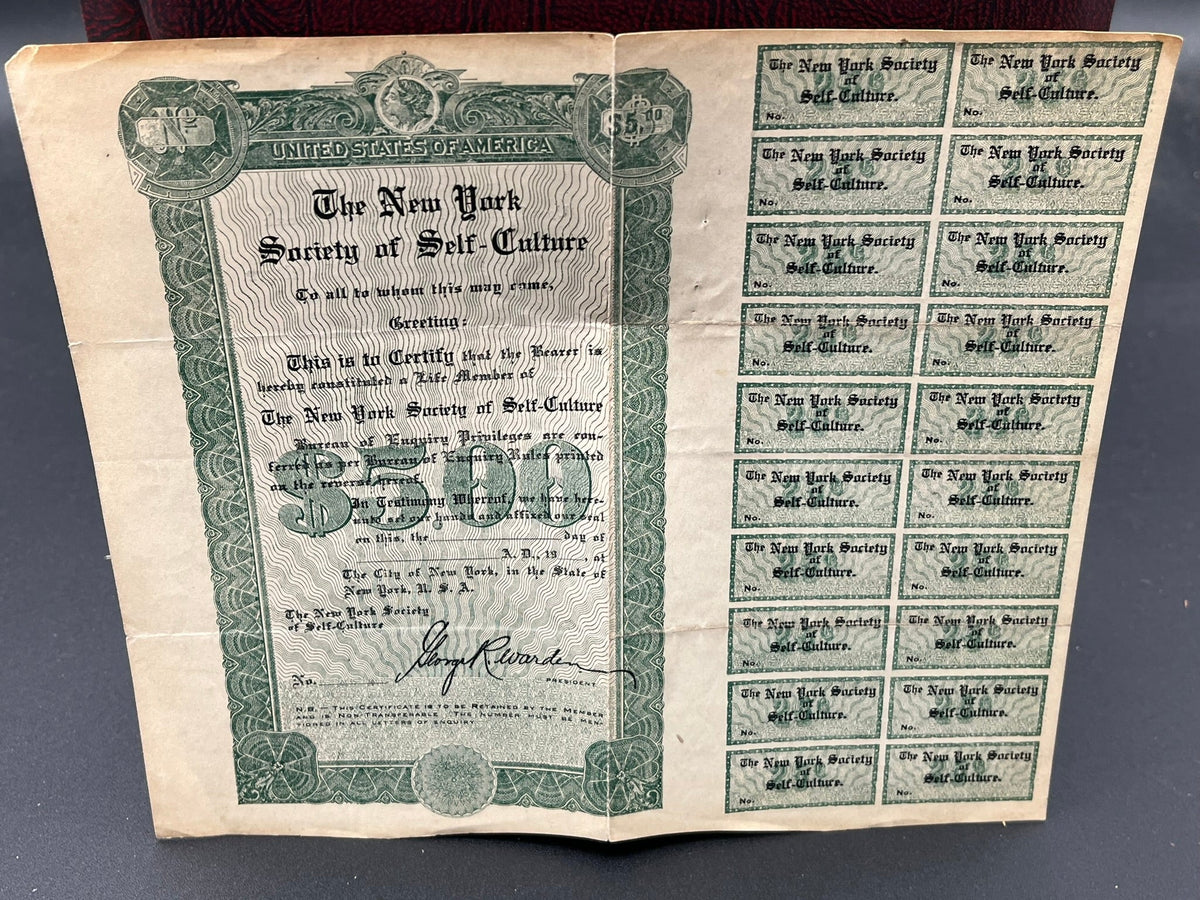 No
$5.00
UNITED STATES OF AMERICA
The New York
Society of Self-Culture
To all to whom this may come,
Greeting:
This is to Certify that the Bearer is
hereby constituted a Life Member of
The New York Society of Self-Culture
Bureau of Enquiry Privileges are con-
ferred as per Bureau of Enquiry Rules printed
on the reverse hereof.
$500
In Testimony Whereof, we have here-
unto set our hands and affixed our seal
on this, the day of
A. D., 19 , at
The City of New York, in the State of
New York, U. S. A.
The New York Society
of Self-Culture
George R Warden
No.
PRESIDENT
N.B.—THIS CERTIFICATE IS TO BE RETAINED BY THE MEMBER
AND IS NON-TRANSFERABLE. THE NUMBER MUST BE MEN-
TIONED IN ALL LETTERS OF ENQUIRY.
The New York Society
of
Self-Culture.
No.
The New York Society
of
Self-Culture.
No.
The New York Society
of
Self-Culture.
No.
The New York Society
of
Self-Culture.
No.
The New York Society
of
Self-Culture.
No.
The New York Society
of
Self-Culture.
No.
The New York Society
of
Self-Culture.
No.
The New York Society
of
Self-Culture.
No.
The New York Society
of
Self-Culture.
No.
The New York Society
of
Self-Culture.
No.
The New York Society
of
Self-Culture.
No.
The New York Society
of
Self-Culture.
No.
The New York Society
of
Self-Culture.
No.
The New York Society
of
Self-Culture.
No.
The New York Society
of
Self-Culture.
No.
The New York Society
of
Self-Culture.
No.
The New York Society
of
Self-Culture.
No.
The New York Society
of
Self-Culture.
No.
The New York Society
of
Self-Culture.
No.
The New York Society
of
Self-Culture.
No.